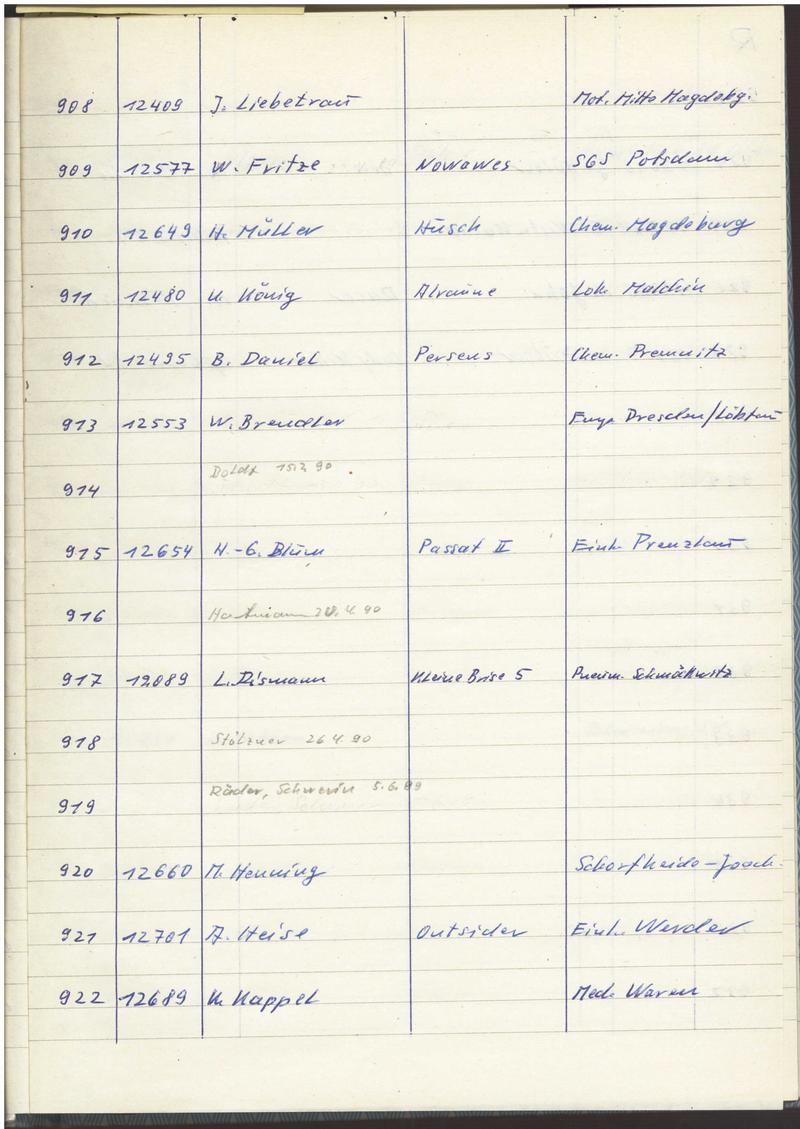 908 12409 J. Liebetrau Mot. Mitte Magdebg.
909 12577 W. Fritze Nowawes SGS Potsdam
910 12649 H. Müller Husch Chem. Magdeburg
911 12480 K. König Alraune Lok. Malchin
912 12495 B. Daniel Perseus Chem. Premnitz
913 12553 W. Brendler Dresden/Löbtau
914 15.2.90
915 12654 H.-G. Blum Passat II Einh. Prenzlau
916 Hartmann 20.4.90
917 12089 L. Dismann Kleine Brise 5 Schmöckwitz
918 Stölzner 26.4.90
919 Räder, Schwerin 5.6.89
920 12660 M. Henning Schorfheide-Joach.
921 12701 A. Heise Outsider Einh. Werder
922 12689 K. Kappel Med. Waren